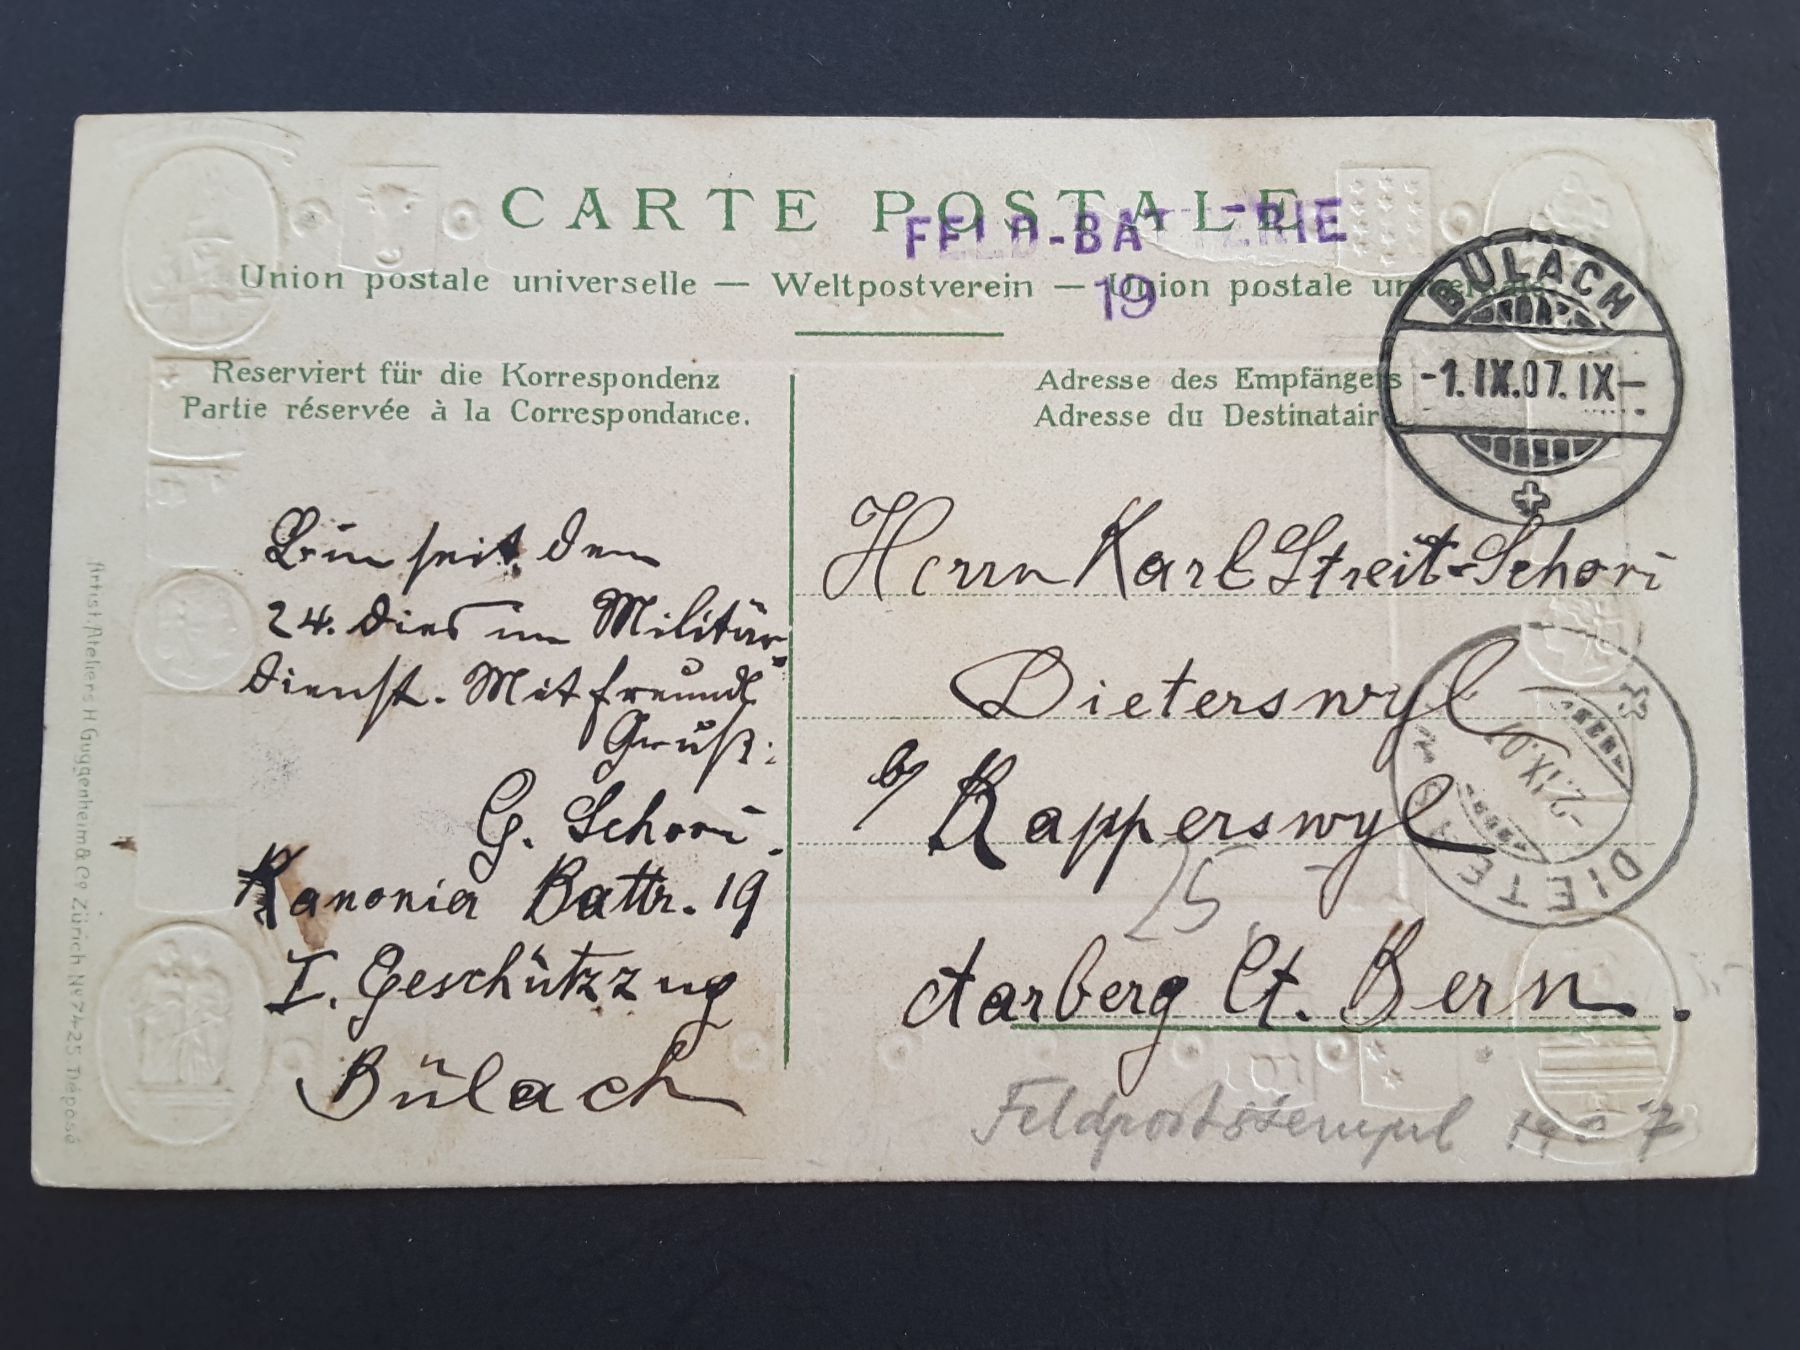 CARTE POSTALE
FELD-BATTERIE
19
Union postale universelle — Weltpostverein — Union postale universale
Reserviert für die Korrespondenz
Partie réservée à la Correspondance.
Adresse des Empfängers
Adresse du Destinataire
BÜLACH
-1.IX.07.IX-
Bin seit dem
24. dies im Militär-
dienst. Mit freundl
Gruß:
G. Schori.
Kanonier Battr. 19
I. Geschützzug
Bülach
Herrn Karl Streit-Schori
Dieterswyl
b/ Rapperswyl
Aarberg Ct. Bern.
-2.IX.07
25
Feldpoststempel 1907
Artist. Ateliers H. Guggenheim & Co Zürich No 7425 Déposé